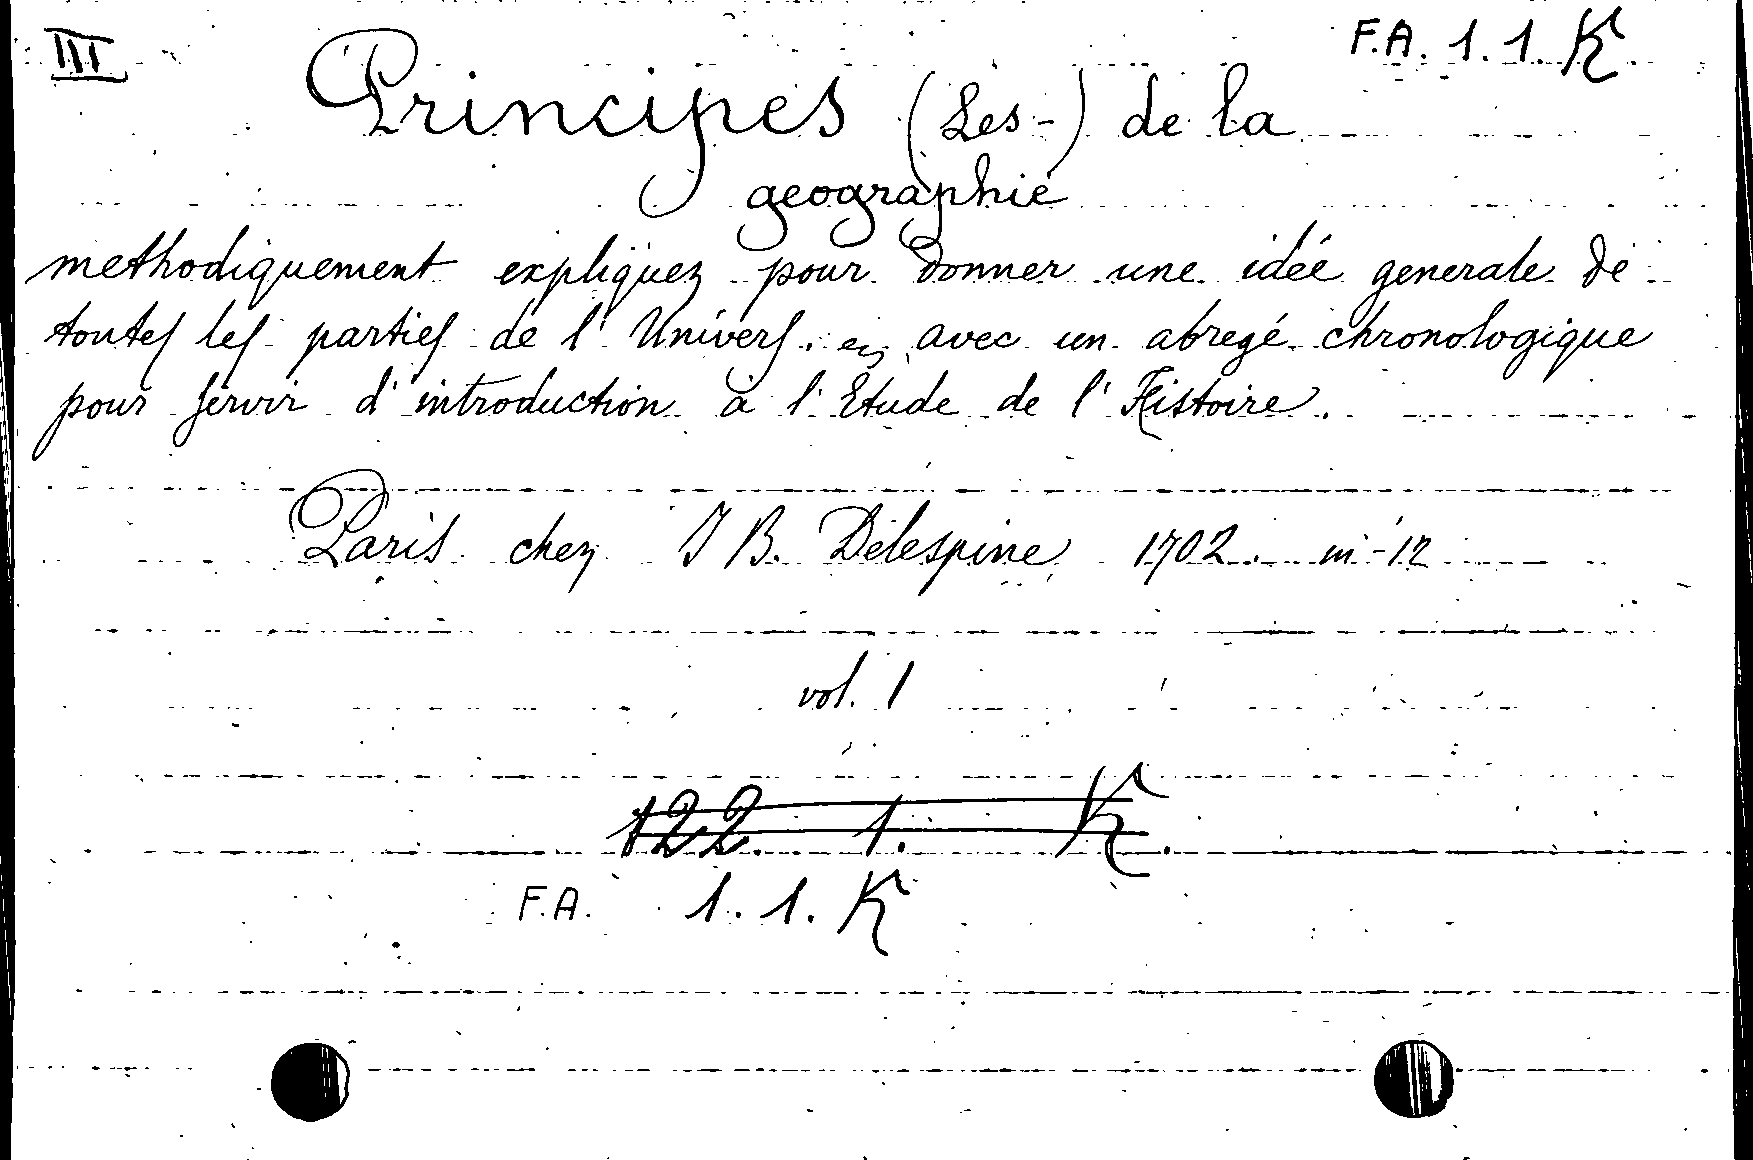 III
F.A. 1. 1. K.
Principes (Les-) de la
geographie
methodiquement expliquez pour donner une idée generale de
toutes les parties de l'Univers. en avec un abregé chronologique
pour servir d'introduction à l'Etude de l'Histoire.
Paris chez J B. Delespine 1702. in-12
vol. 1
122. 1. K.
F.A. 1. 1. K